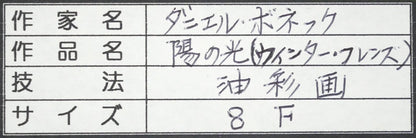 作家名 ダニエル・ボネック
作品名 陽の光(ウィンター・フレンズ)
技法 油彩画
サイズ 8F